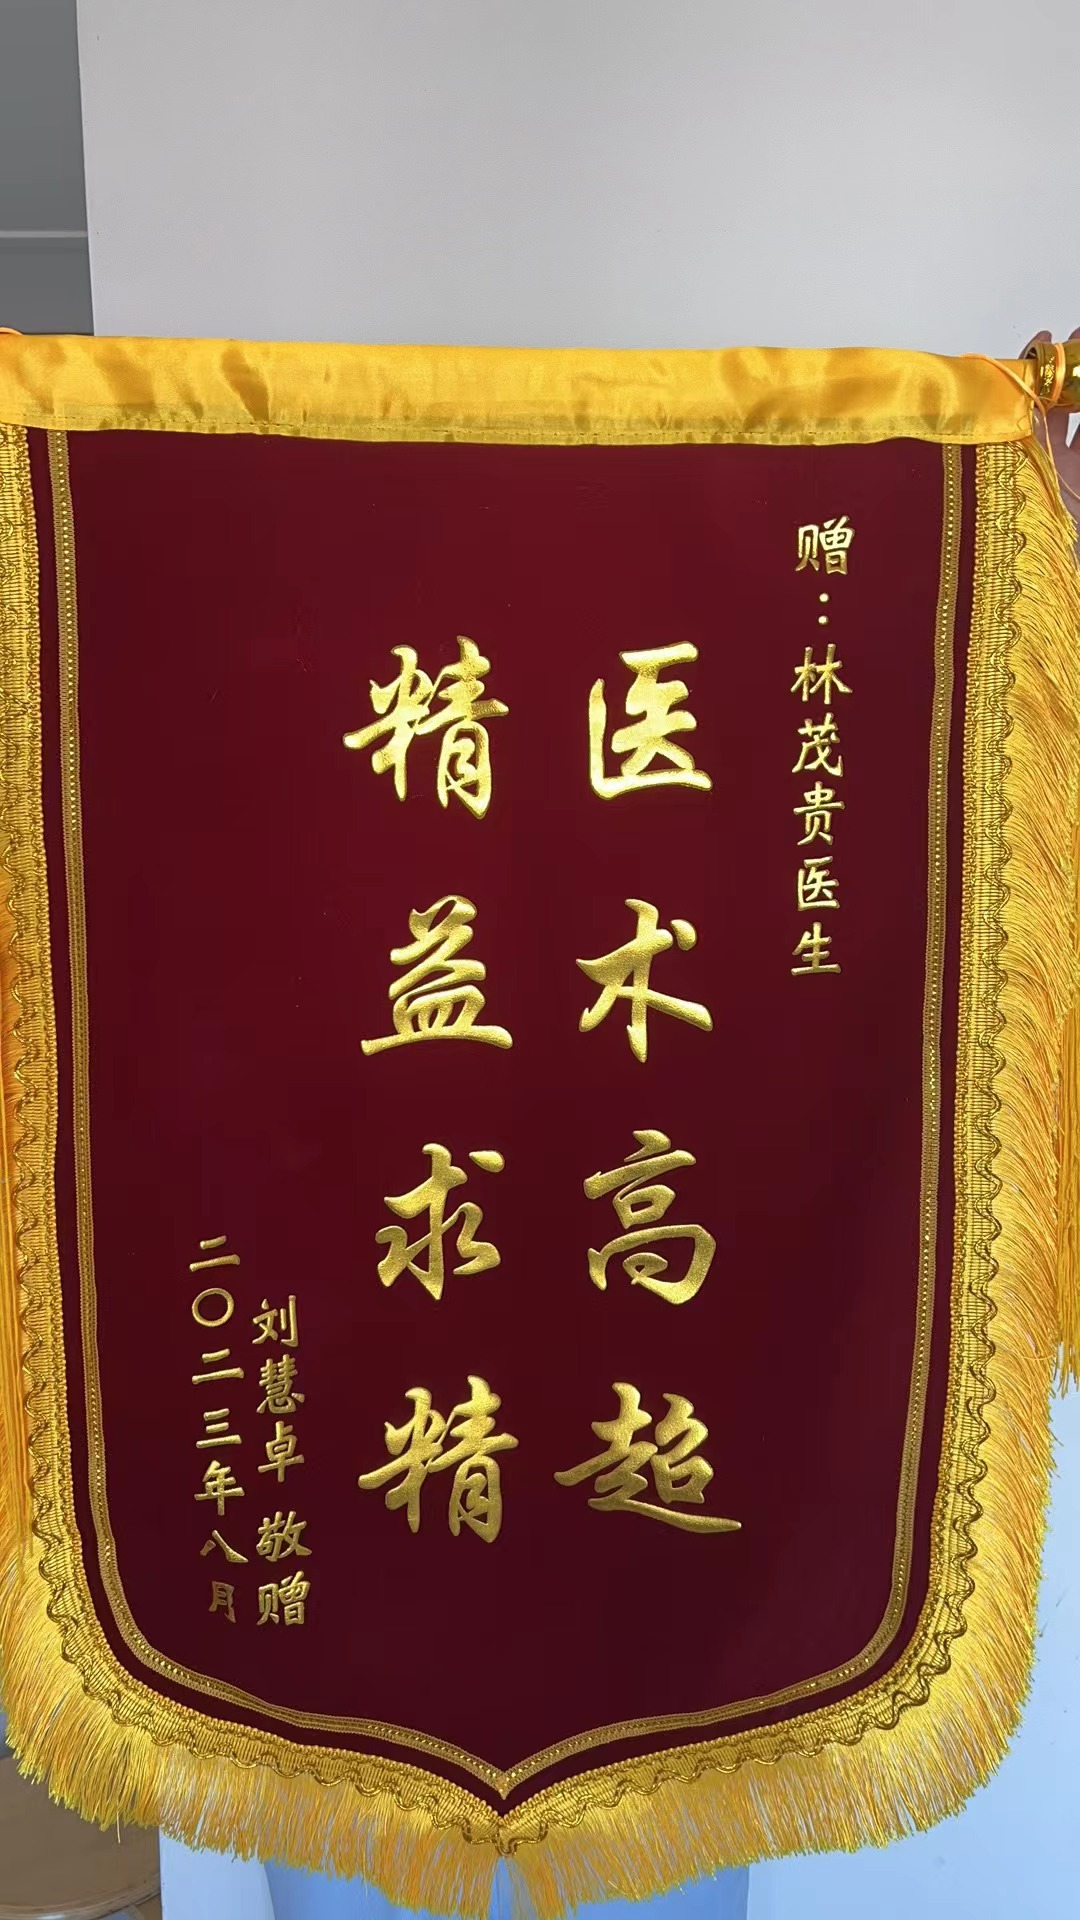 赠：林茂贵医生
医术高超
精益求精
刘慧卓 敬赠
二〇二三年八月